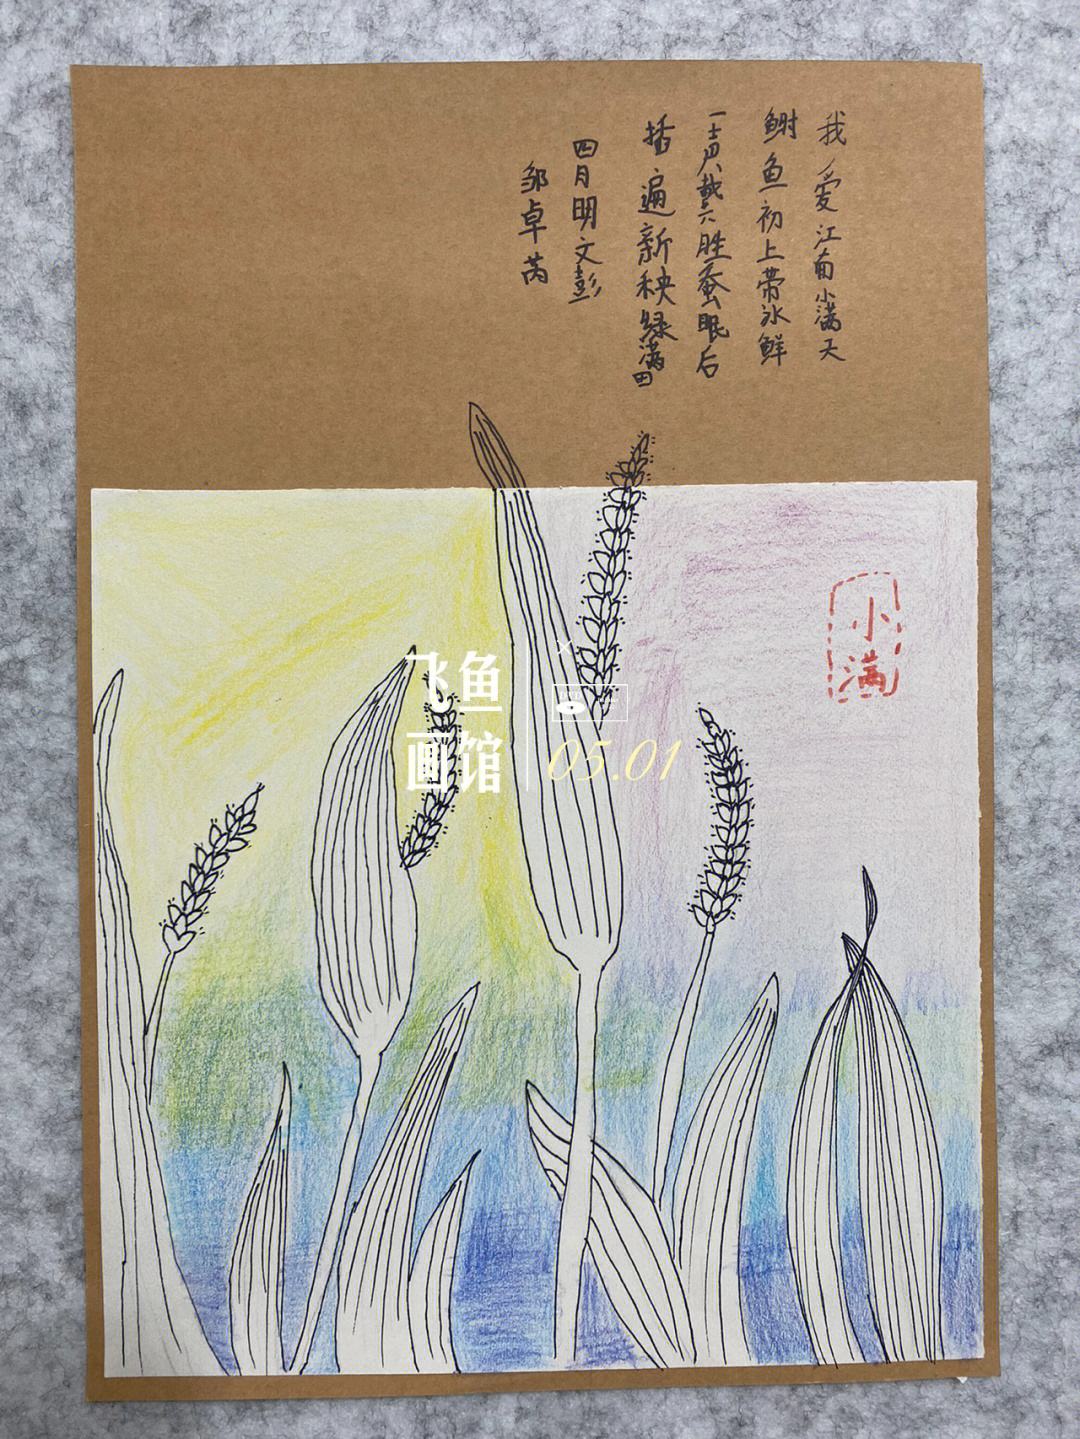 我爱江南小满天
鲥鱼初上带冰鲜
一声戴胜蚕眠后
插遍新秧绿满田
四月明文彭
邹卓芮
小满
飞鱼
画馆
05.01